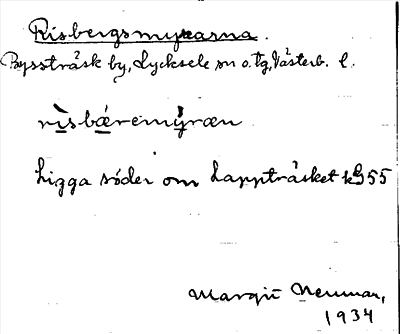 Risbergsmyrarna.
Byssträsk by, Lycksele sn o. tg, Västerb. l.
rìsbæ̀remỳræn
Ligga söder om Lappträsket k 955
Margit Neuman,
1934